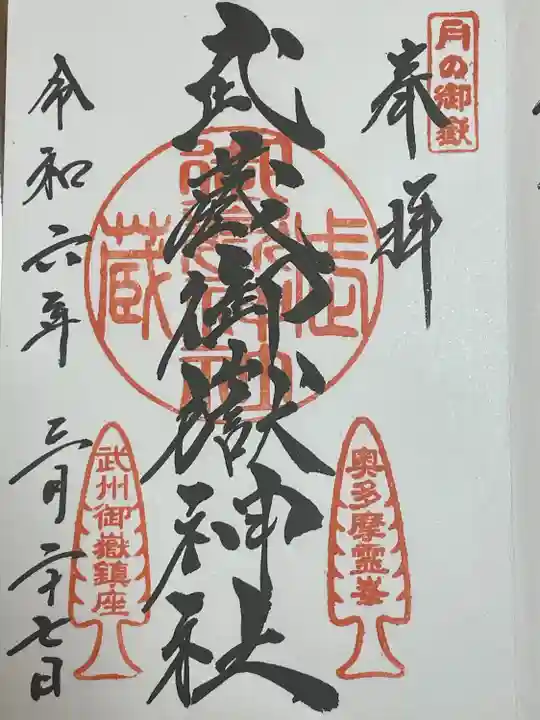 月の御嶽
奉拝
奥多摩霊峯
武蔵御嶽神社
武蔵
武州御嶽鎮座
令和六年三月二十七日